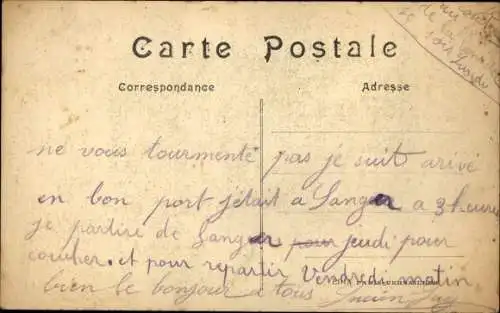 Carte Postale
Correspondance
Adresse
ne vous tourmenté pas je suit arivé
en bon port j'était a Langer a 3 heure
je partire de Langer pour jeudi pour
coucher. et pour repartir Vendredi matin
bien le bonjour a tous Lucien